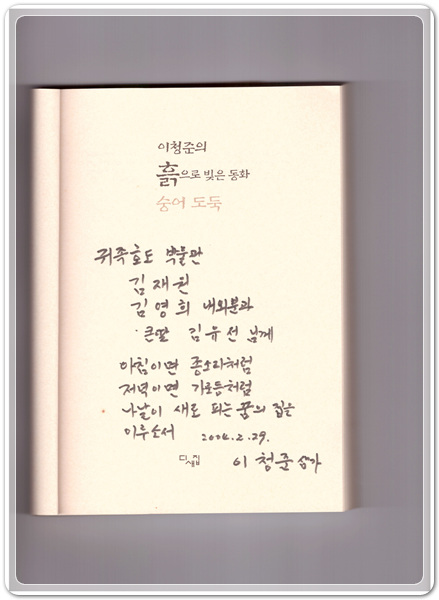 이청준의
흙으로 빚은 동화
숭어 도둑
귀족호도 박물관
김재원
김영희 내외분과
큰딸 김유선 님께
아침이면 종소리처럼
저녁이면 가로등처럼
나날이 새로 피는 꿈의 집을
이루소서 2004.2.29.
디새집
이청준